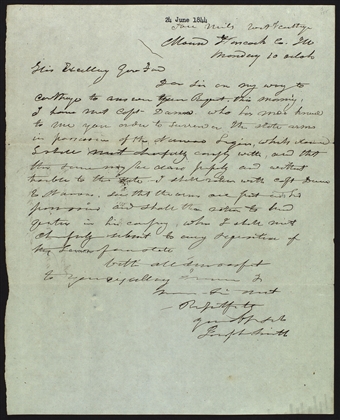 24 June 1844
Four Miles West Carthage
Mound Hancock Co. Ill
Monday 10 o'clock
His Excellency Gov Ford
Dear Sir on my way to
Carthage to answer your request this morning,
I here met Capt Dunn, who has made known
to me your order to surrender the state arms
in possession of the Nauvoo Legion, which
I shall comply with, and that
the same may be done properly and without
trouble to the state, I shall return with Capt Dunn
to Nauvoo, see that the arms are put into his
possession, and shall then return to head
quarters in his company, when I shall most
cheerfully submit to any requisition of
the Governor of our state
With all due respect
to your excellency
I
Obt
Servt
Joseph Smith